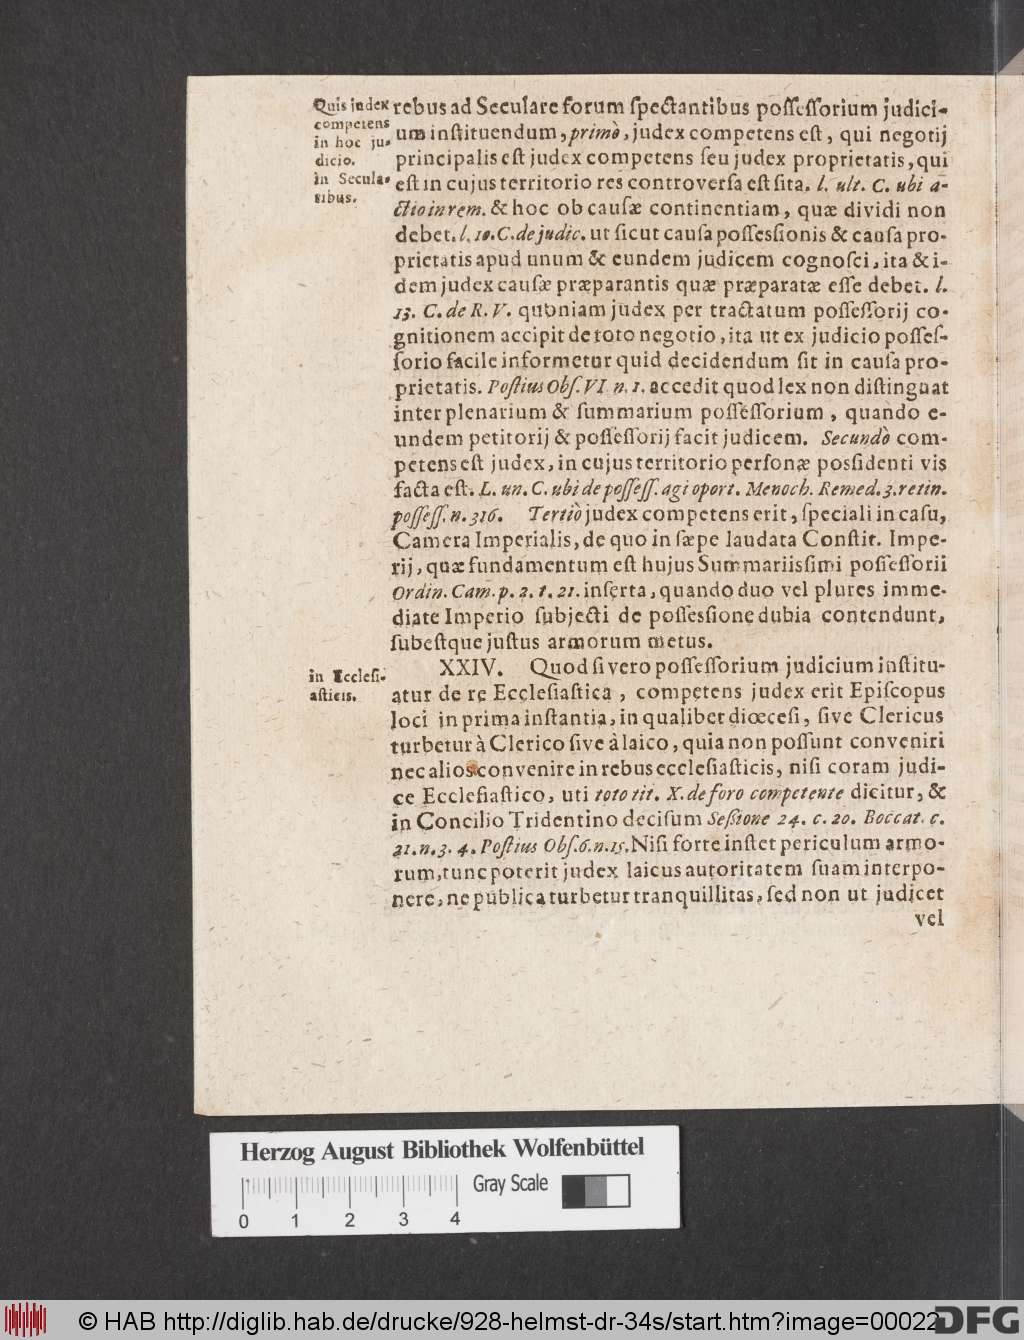 Quis judex
competens
in hoc ju-
dicio.
in Secula-
ribus.
rebus ad Seculare forum ſpectantibus poſſeſſorium judici-
um inſtituendum, primò, judex competens eſt, qui negotij
principalis eſt judex competens ſeu judex proprietatis, qui
eſt in cujus territorio res controverſa eſt ſita. l. ult. C. ubi a-
ctio in rem. & hoc ob cauſæ continentiam, quæ dividi non
debet. l. 10. C. de judic. ut ſicut cauſa poſſeſsionis & cauſa pro-
prietatis apud unum & eundem judicem cognoſci, ita & i-
dem judex cauſæ præparantis quæ præparatæ eſſe debet. l.
13. C. de R. V. quoniam judex per tractatum poſſeſſorij co-
gnitionem accipit de toto negotio, ita ut ex judicio poſſeſ-
ſorio facile informetur quid decidendum ſit in cauſa pro-
prietatis. Poſtius Obſ. VI n. 1. accedit quod lex non diſtinguat
inter plenarium & ſummarium poſſeſſorium, quando e-
undem petitorij & poſſeſſorij facit judicem. Secundò com-
petens eſt judex, in cujus territorio perſonæ poſsidenti vis
facta eſt. L. un. C. ubi de poſſeſſ. agi oport. Menoch. Remed. 3. retin.
poſſeſſ. n. 316. Tertiò judex competens erit, ſpeciali in caſu,
Camera Imperialis, de quo in ſæpe laudata Conſtit. Impe-
rij, quæ fundamentum eſt hujus Summariisſimi poſſeſſorii
Ordin. Cam. p. 2. t. 21. inſerta, quando duo vel plures imme-
diate Imperio ſubjecti de poſſesſione dubia contendunt,
ſubeſtque juſtus armorum metus.
in Eccleſi-
aſticis.
XXIV. Quod ſi vero poſſeſſorium judicium inſtitu-
atur de re Eccleſiaſtica, competens judex erit Epiſcopus
loci in prima inſtantia, in qualibet diœceſi, ſive Clericus
turbetur à Clerico ſive à laico, quia non poſſunt conveniri
nec alios convenire in rebus eccleſiaſticis, niſi coram judi-
ce Eccleſiaſtico, uti toto tit. X. de foro competente dicitur, &
in Concilio Tridentino deciſum Seßione 24. c. 20. Boccat. c.
21. n. 3. 4. Poſtius Obſ. 6. n. 15. Niſi forte inſtet periculum armo-
rum, tunc poterit judex laicus autoritatem ſuam interpo-
nere, ne publica turbetur tranquillitas, ſed non ut judicet
vel
Herzog August Bibliothek Wolfenbüttel
Gray Scale
0 1 2 3 4
© HAB http://diglib.hab.de/drucke/928-helmst-dr-34s/start.htm?image=00022
DFG